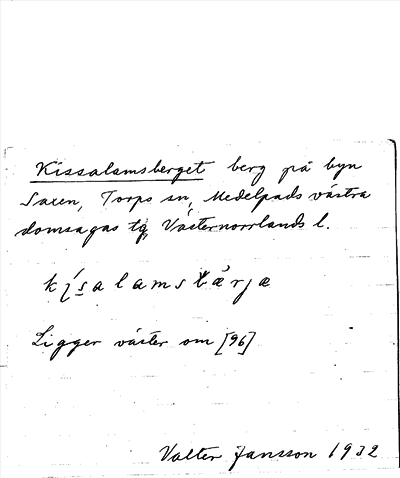 Kissalamsberget berg på byn
Saxen, Torps sn, Medelpads västra
domsagas tg, Västernorrlands l.
Ligger väster om [96]
Valter Jansson 1932